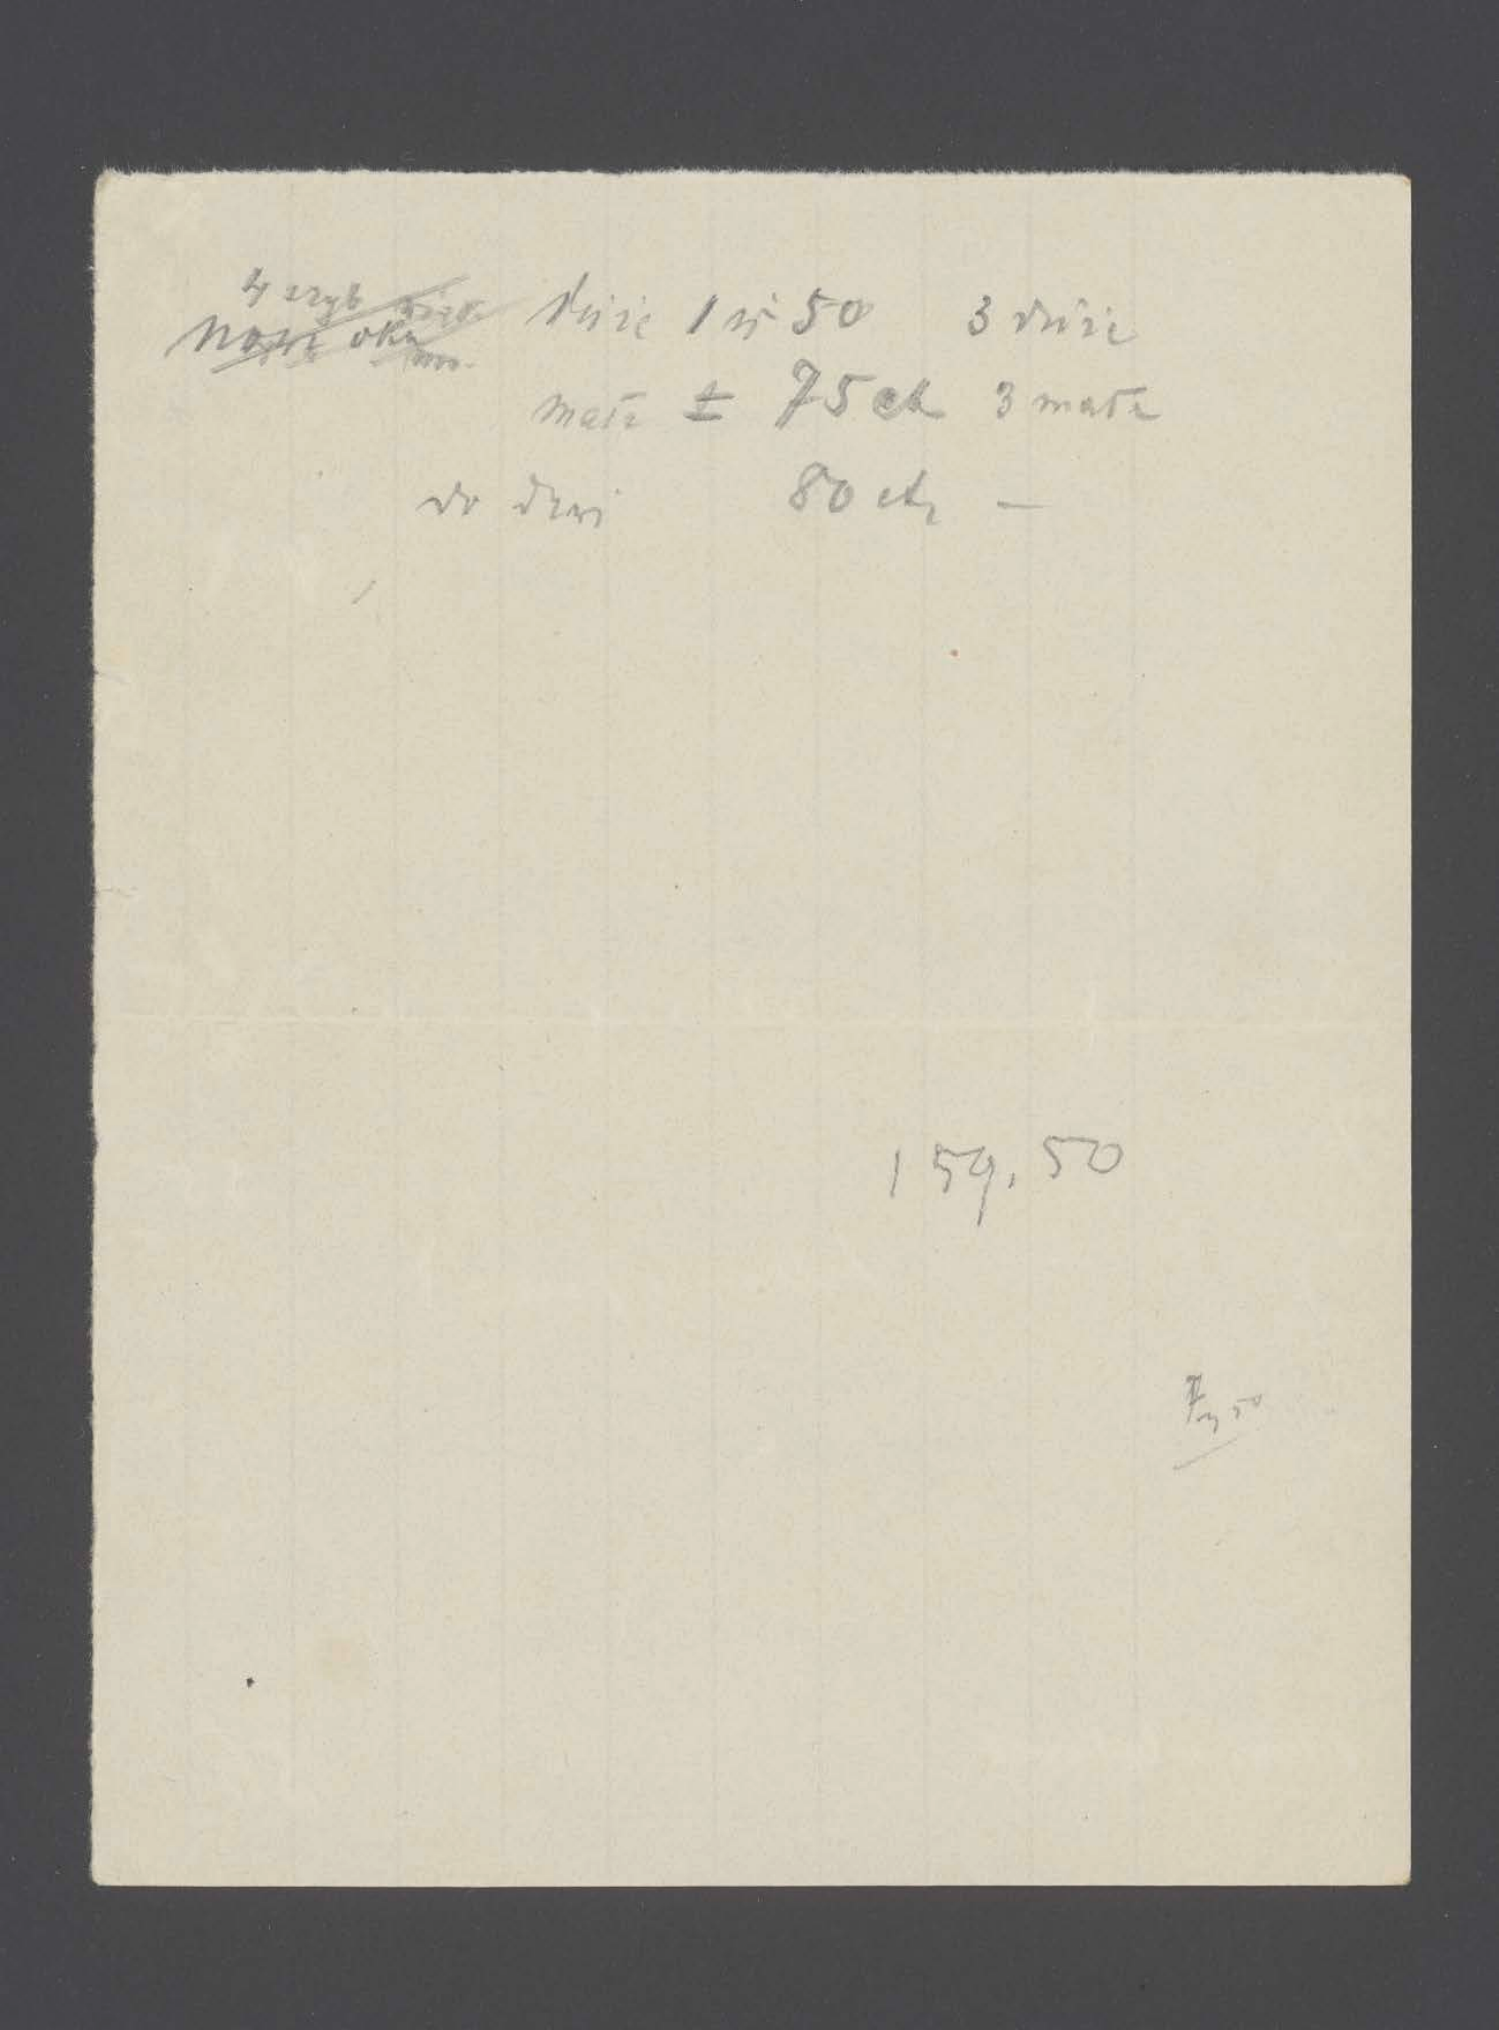 4 szyb
okna
duże 1 zł 50 3 duże
małe ± 75 ct 3 małe
do drzwi 80 ct –
159.50
50